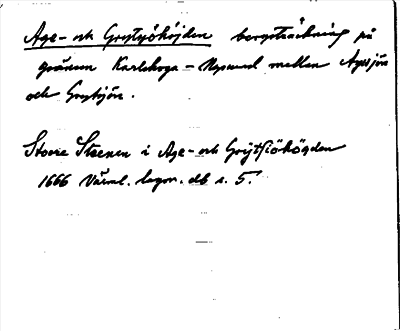 Age- och Grytsjöhöjden bergsträckning på
gränsen Karlskoga - Nysund mellan Agesjön
och Grytsjön.
Store Steenen i Age- och Grytsiöhögden
1666 Värml. lagm. db s. 5.